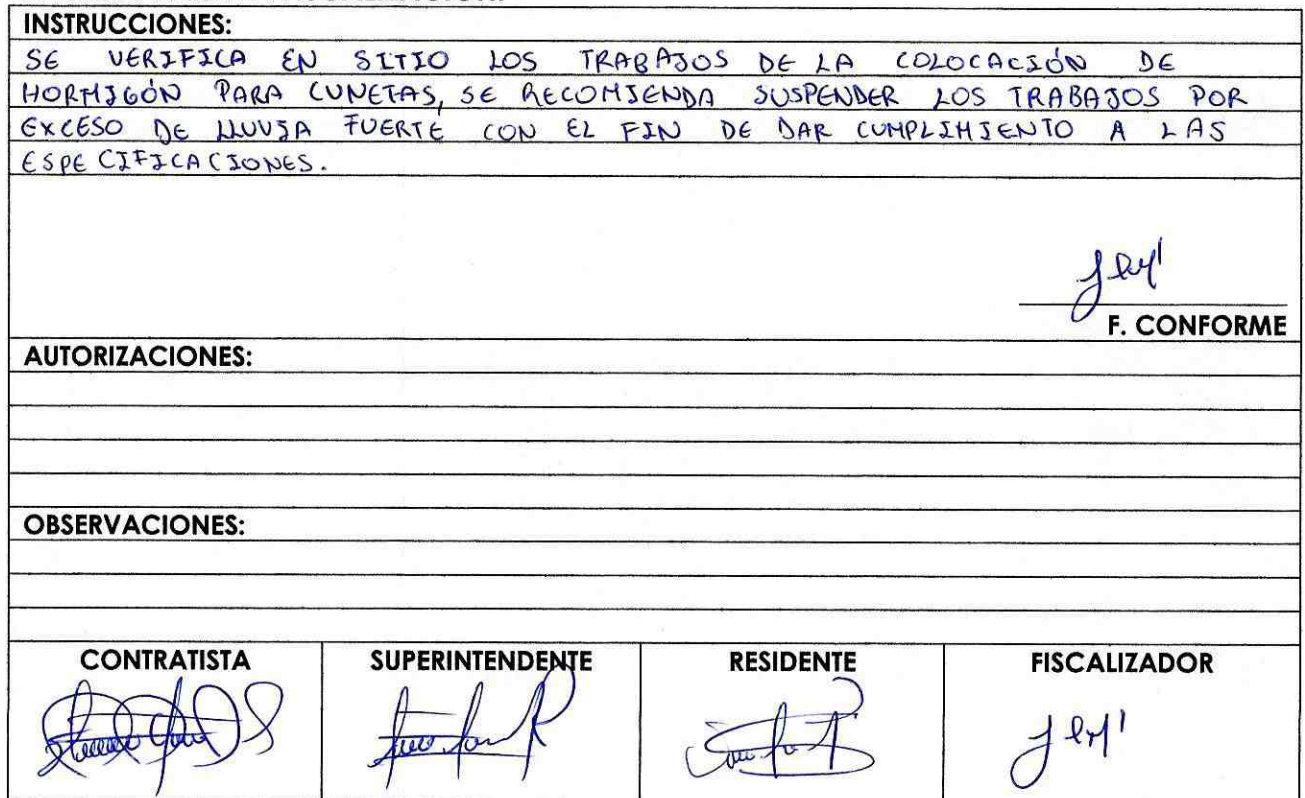 INSTRUCCIONES:
SE VERIFICA EN SITIO LOS TRABAJOS DE LA COLOCACIÓN DE
HORMIGÓN PARA CUNETAS, SE RECOMIENDA SUSPENDER LOS TRABAJOS POR
EXCESO DE LLUVIA FUERTE CON EL FIN DE DAR CUMPLIMIENTO A LAS
ESPECIFICACIONES.
F. CONFORME
AUTORIZACIONES:
OBSERVACIONES:
CONTRATISTA SUPERINTENDENTE RESIDENTE FISCALIZADOR